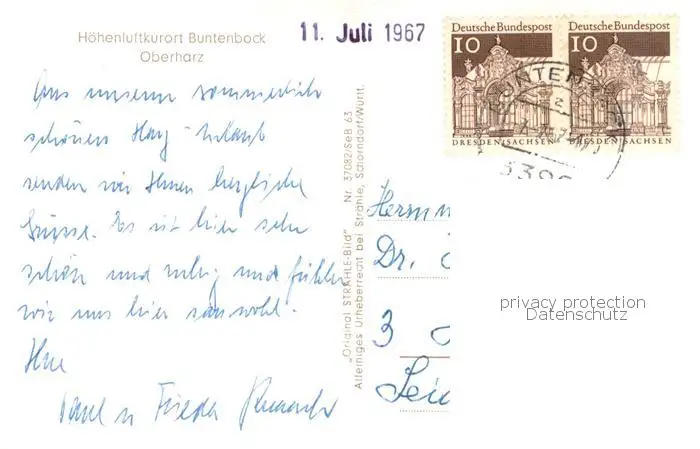 Höhenluftkurort Buntenbock
Oberharz
11. Juli 1967
Deutsche Bundespost
10
DRESDEN, SACHSEN
Deutsche Bundespost
10
DRESDEN, SACHSEN
BUNTEN
Aus unserm sommerlich
schönen Harz-Urlaub
senden wir Ihnen herzliche
Grüsse. Es ist hier sehr
schön und ruhig und fühlen
wir uns hier sauwohl.
Ihre
u Frieda
"Original STRÄHLE-Bild" Nr. 37082/SeB 63
Alleiniges Urheberrecht bei Strähle, Schorndorf/Württ.
Herrn
Dr.
3
privacy protection
Datenschutz